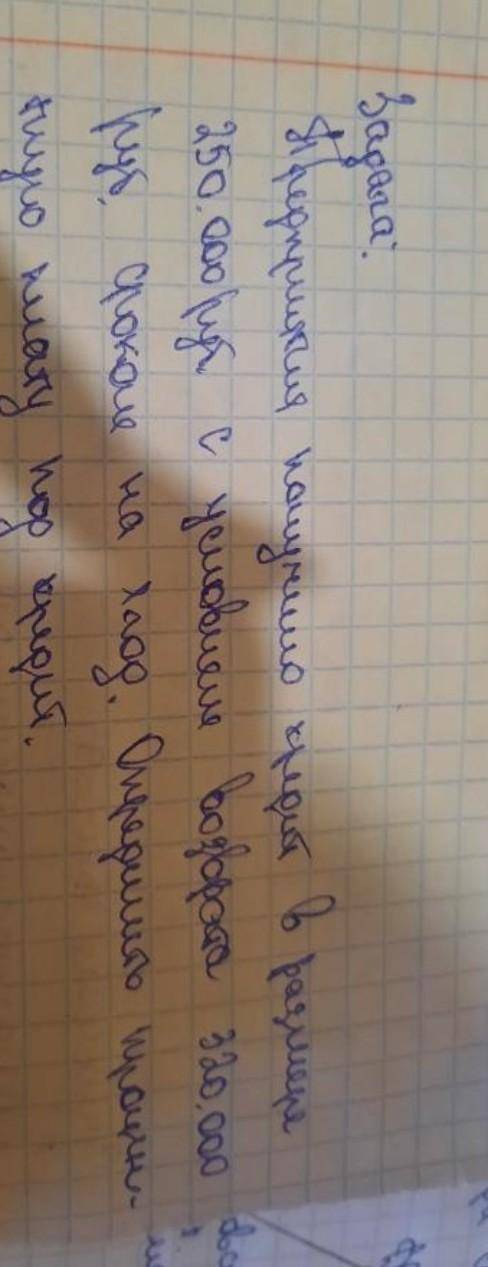 Задача:
Предприятия получило кредит в размере
250.000 руб. с условием возврата 320.000
руб. сроком на 1 год. Определить процен-
тную плату под кредит.